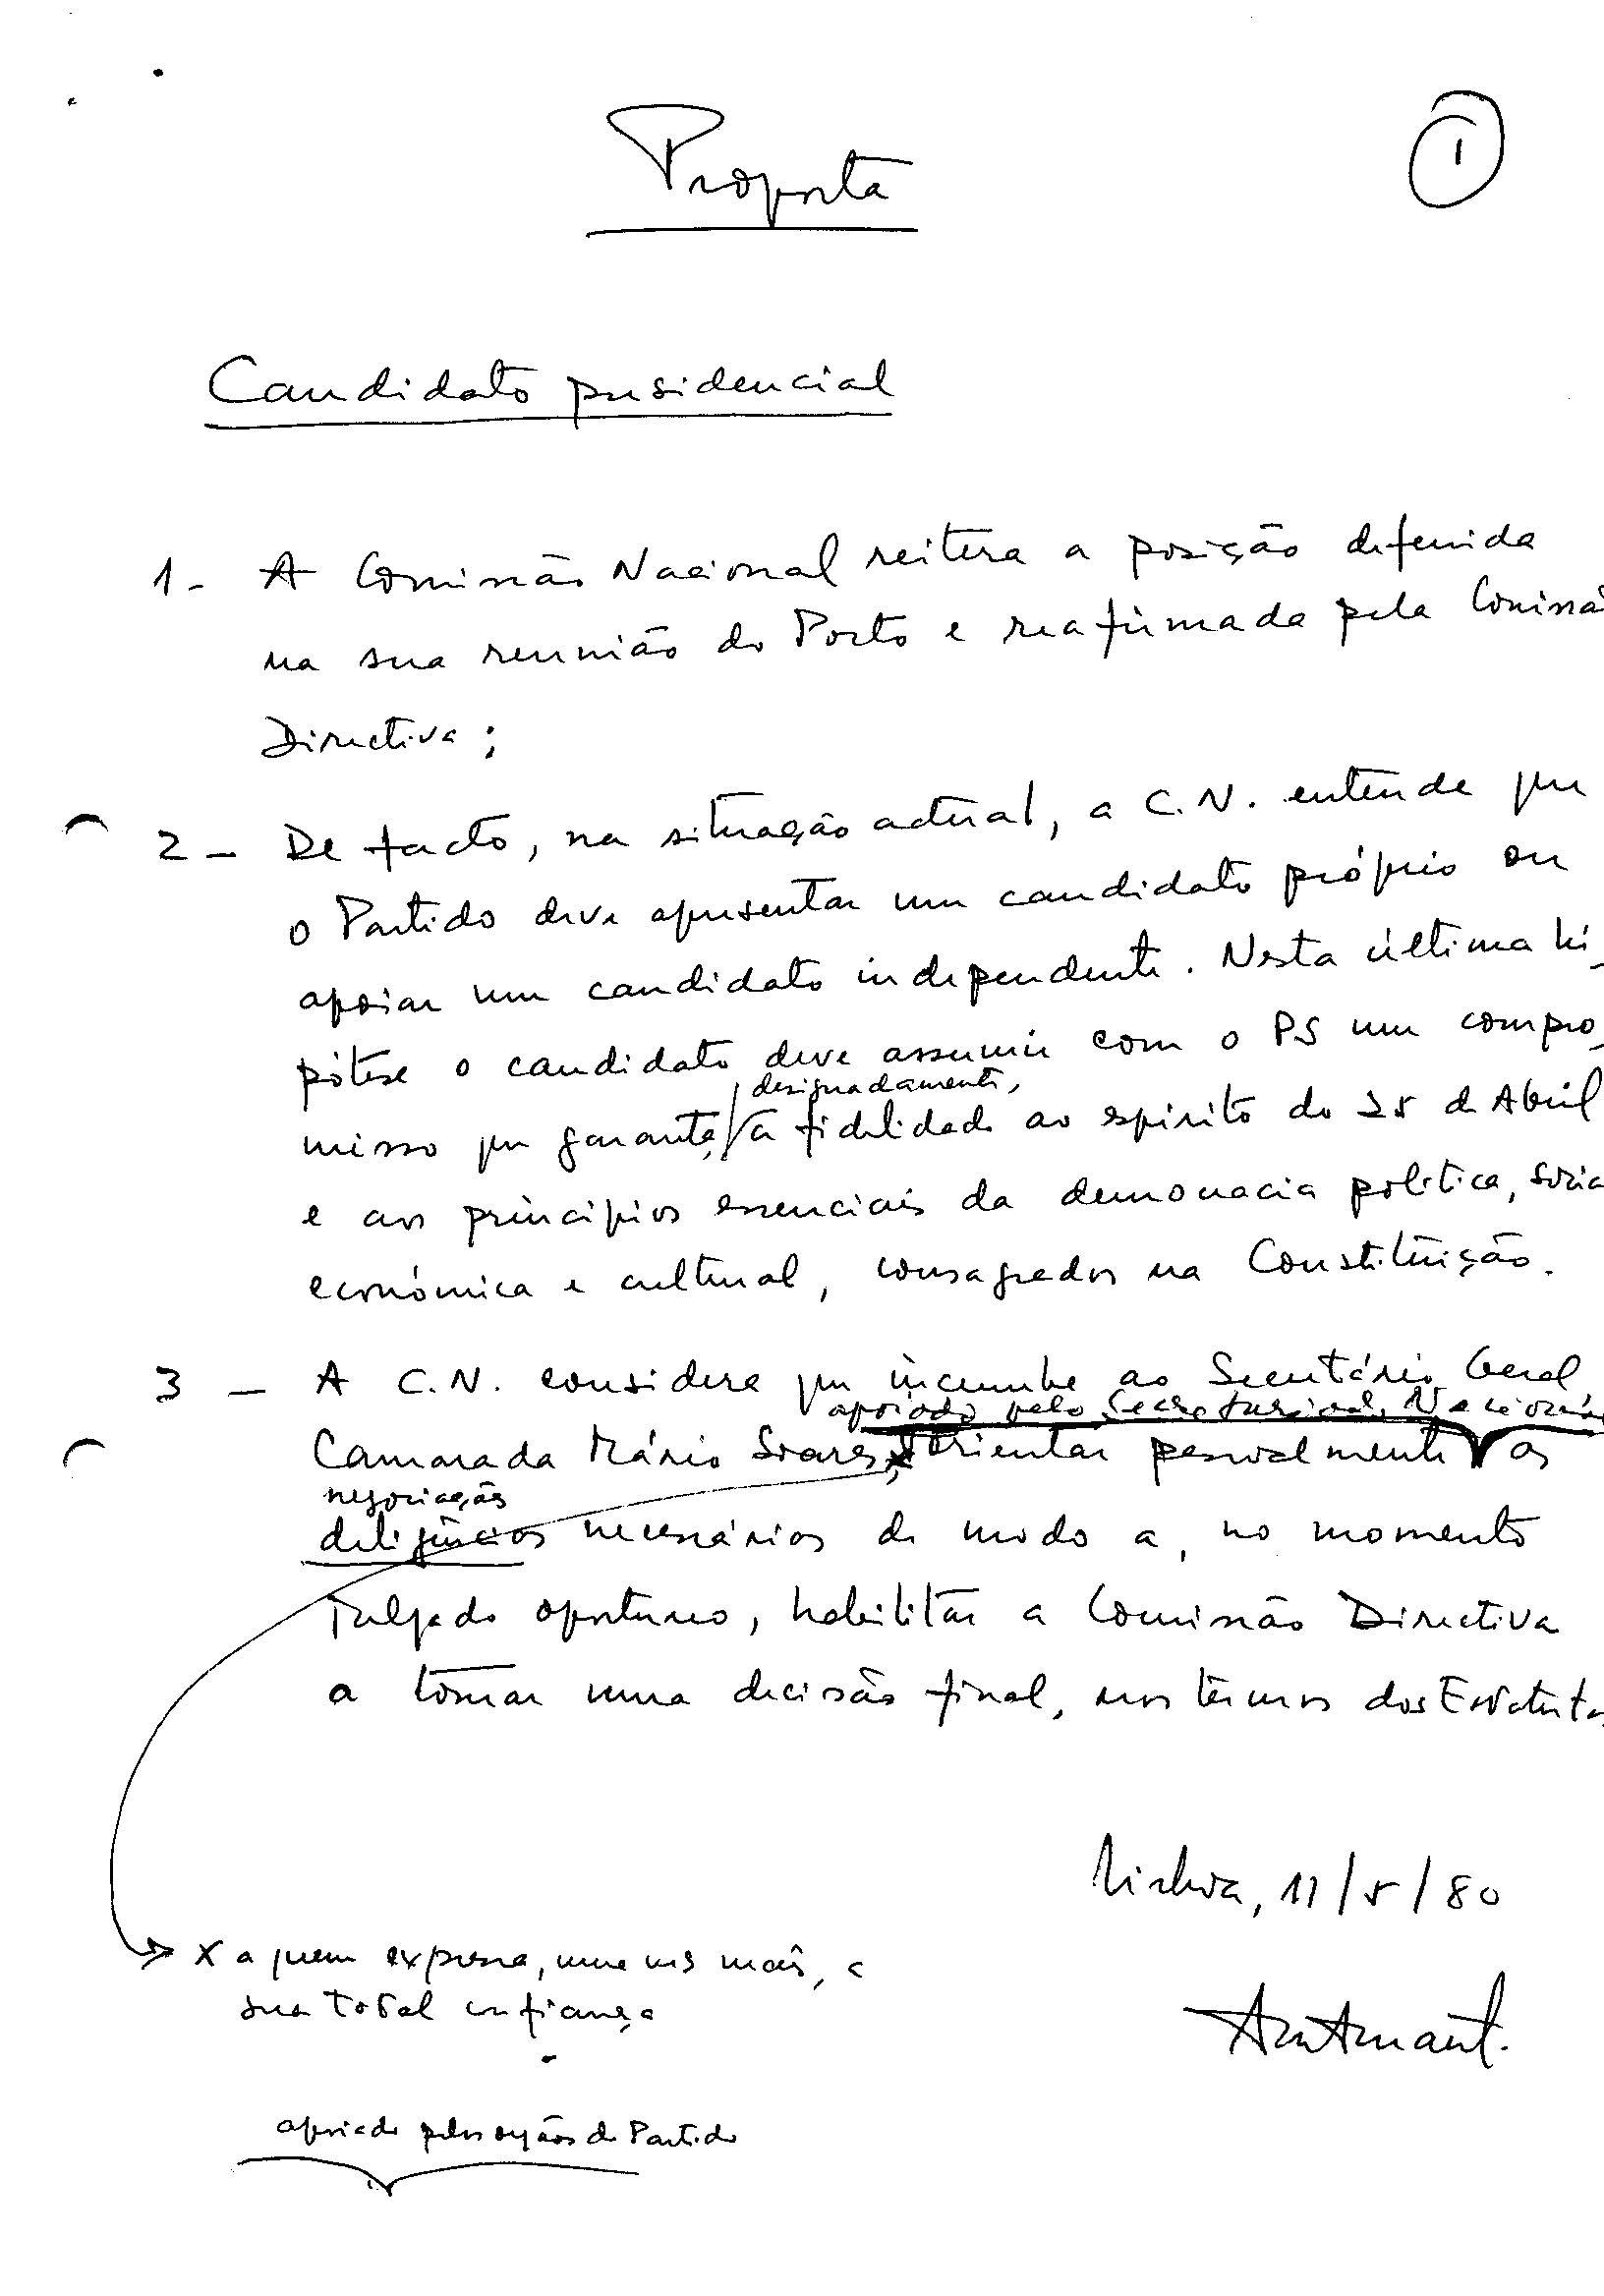 Proposta
1
Candidato presidencial
1- A Comissão Nacional reitera a posição defenida
na sua reunião do Porto e reafirmada pela Comissã
Directiva;
2 - De facto, na situação actual, a C.N. entende que
o Partido deve apresentar um candidato próprio ou
apoiar um candidato independente. Nesta última hi-
pótese o candidato deve assumir com o PS um compro-
designadamente,
misso que garanta, a fidelidade ao espírito do 25 de Abril
e aos princípios essenciais da democracia politica, socia
económica e cultural, consagrados na Constituição.
3 - A C.N. considera que incumbe ao Secretário Geral
apoiado pelo Secretariado Naciona
Camarada Mário Soares, orientar pessoalmente as
negociações
diligências necessárias de modo a, no momento
julgado oportuno, habilitar a Comissão Directiva
a tomar uma decisão final, nos termos dos Estatutos
Lisboa, 11/5/80
x a quem expressa, uma vez mais, a
sua total confiança
apoiado pelos orgãos do Partido